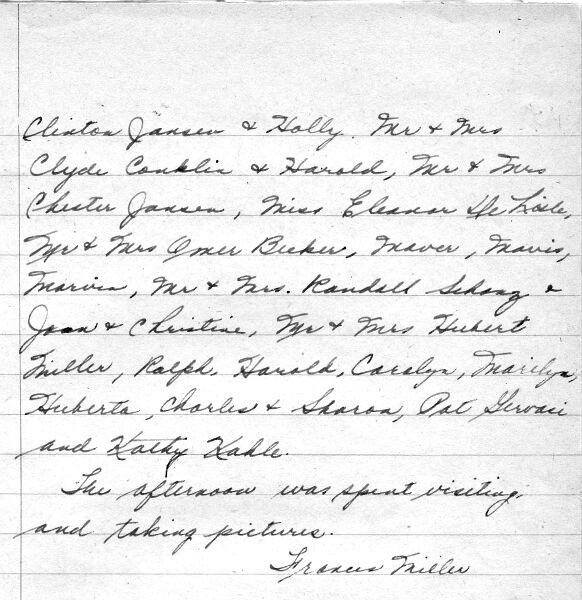 Clinton Jansen & Holly. Mr & Mrs
Clyde Conklin & Harold, Mr & Mrs
Chester Jansen, Miss Eleanor De Lisle,
Mr & Mrs Omer Becker, Maver, Mavis,
Marvin, Mr & Mrs. Randall Schanz &
Joan & Christine, Mr & Mrs Hubert
Miller, Ralph, Harold, Carolyn, Marilyn,
Huberta, Charles & Sharon, Pat Gervasi
and Kathy Kahle.
The afternoon was spent visiting,
and taking pictures.
Francis Miller